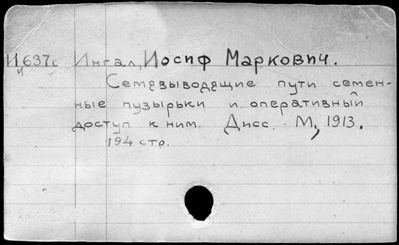 И637с Ингал, Иосиф Маркович.
и
Семявыводящие пути семен-
ные пузырьки и оперативный
доступ к ним. Дисс. М, 1913.
194 стр.